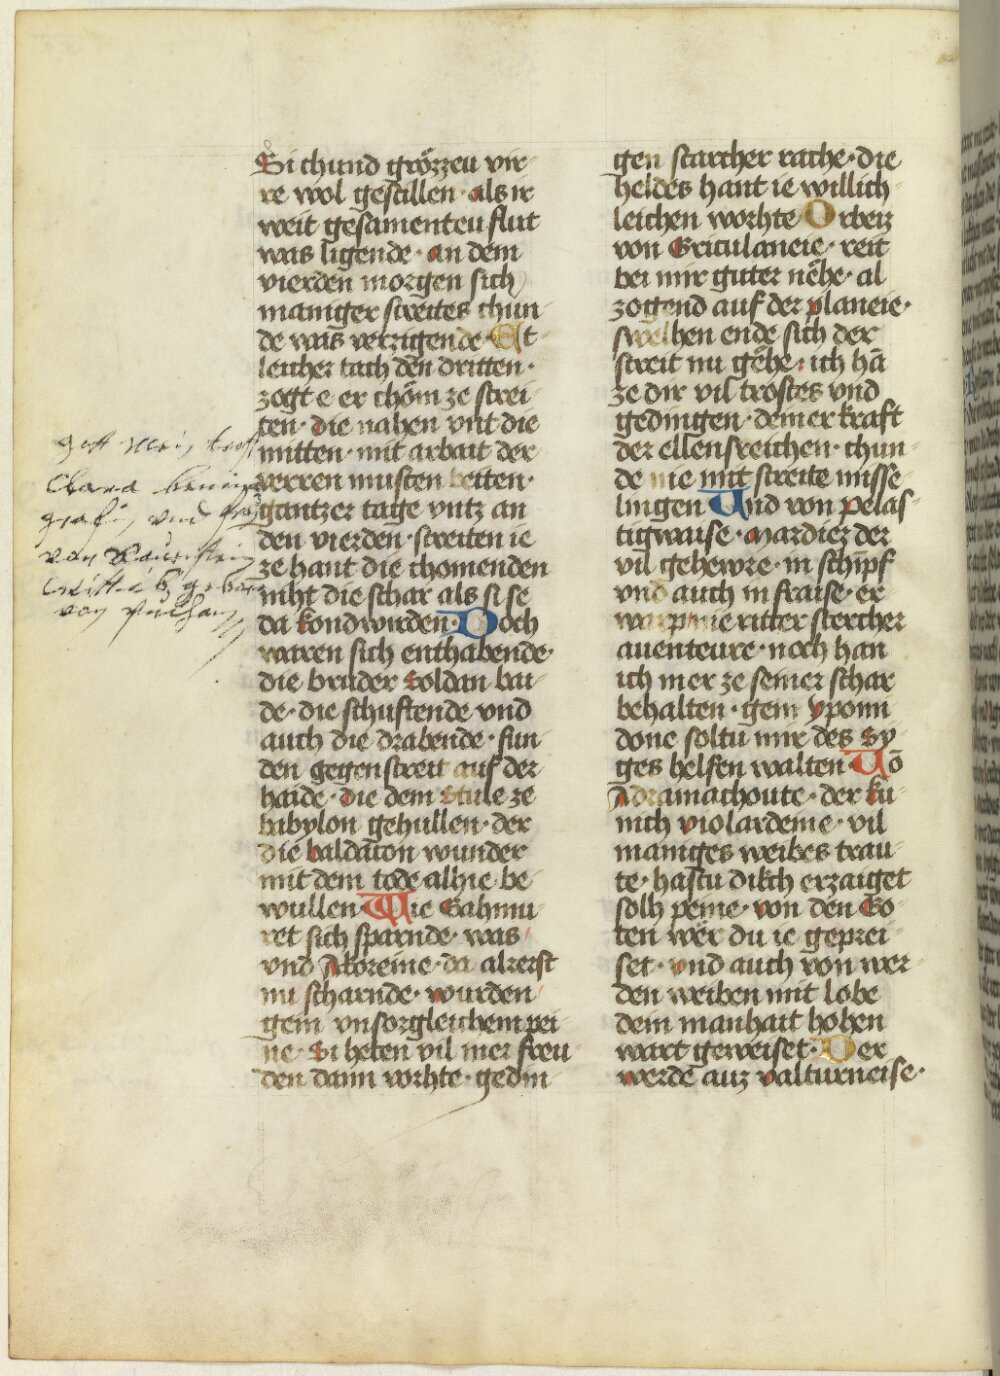 Si chund grözzeu vir-
re wol gestillen · als ir
weit gesamenteu flut
was ligende · an dem
vierden morgen sich
maniger streites chun-
de was verzigende · Et
leicher tach den dritten ·
zogt e er chöm ze strei-
ten · die nahen vnt die
mitten · mit arbait der
verren musten beiten ·
gantzer tage vntz an
den vierden · streiten ie
ze hant die chomenden
niht die schar als si se
da kondwurden · Doch
waren sich enthabende ·
die bruder soldan bai-
de · die schuftende vnd
auch die drabende · fun-
den gegenstreit auf der
haide · die dem Stule ze
babylon gehullen · der
die baldacon wunder
mit dem tode alhie be-
wullen · Wie Gahmu-
ret sich sparnde · was
vnd Akoreine · da alrerst
nu scharnde · wurden
gein vnsorgleichem pei-
ne · Si heten vil mer freu-
den dann vorhte · gedin-
gen starcher rache · die
heldes hant ie willich-
leichen worhte Orbeiz
von Griculaneie · reit
bei mir guter nehe · al
zogend auf der planeie ·
swelhen ende sich der
streit nu gehe · ich hā
ze dir vil trostes vnd
gedingen · deiner kraft
der ellensreichen · chun-
de nie mit streite misse-
lingen Vnd von pelas-
tigwaise · mardiez der
vil gehewre · in schipf
vnd auch in fraise · er
warp nie ritter stercher
auenteure · noch han
ich mer ze seiner schar
behalten · gein yponn
done soltu mir des Sy-
ges helfen walten Vō
Adramachoute · der ku-
nich violardeine · vil
maniges weibes trau-
te · hastu dikch erzaiget
solh peine · von den Go-
ten wer du ie geprei-
set · vnd auch von wer-
den weiben mit lobe
dein manhait hohen
wart geweiset · Der
werde auz valturneise ·
gott mein
Clara
von